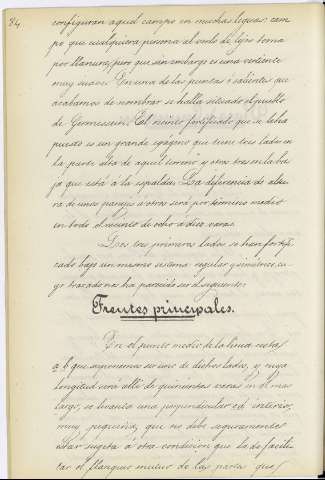 84
configuran aquel campo en muchas leguas: cam
po que cualquiera persona al verlo de lejos toma
por llanura, pero que sin embargo es una vertiente
muy suave. En una de las puntas ó salientes que
acabamos de nombrar se halla situado el pueblo
de Germessir. El recinto fortificado que se le ha
puesto es un grande exágono que tiene tres lados en
la parte alta de aquel terreno y otros tres en la ba
ja que está á la espalda. La diferencia de altu
ra de unos parajes á otros será por término medio
en todo el recinto de ocho á diez varas.
Los tres primeros lados se han fortifi
cado bajo un mismo sistema regular y simétrico, cu
yo trazado me ha parecido ser el siguiente:
Frentes principales.
En el punto medio de la linea recta
a b que suponemos ser uno de dichos lados, y cuya
longitud será allí de quinientas varas en el mas
largo, se levanta una perpendicular al interior,
muy pequeña, que no debe seguramente
estar sugeta á otra condicion que la de facili
tar el flanqueo mutuo de las partes que